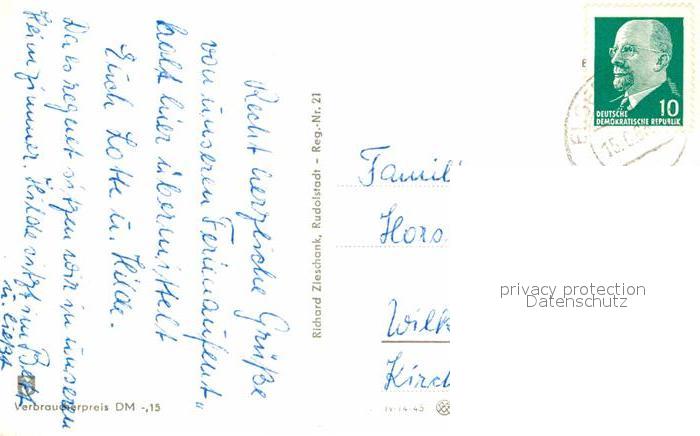 Recht herzliche Grüße
von unseren Ferienaufent"
halt hier übermittelt
Euch Lotte u. Hilde.
Da es regnet sitzen wir in unseren
Heimzimmer. Hilde sitzt im Bett
u. ließt
Verbraucherpreis DM -,15
Richard Zieschank, Rudolstadt – Reg.-Nr. 21
10
DEUTSCHE
DEMOKRATISCHE REPUBLIK
Famil
Hors
Wilk
Kirch
IV-14-45
privacy protection
Datenschutz